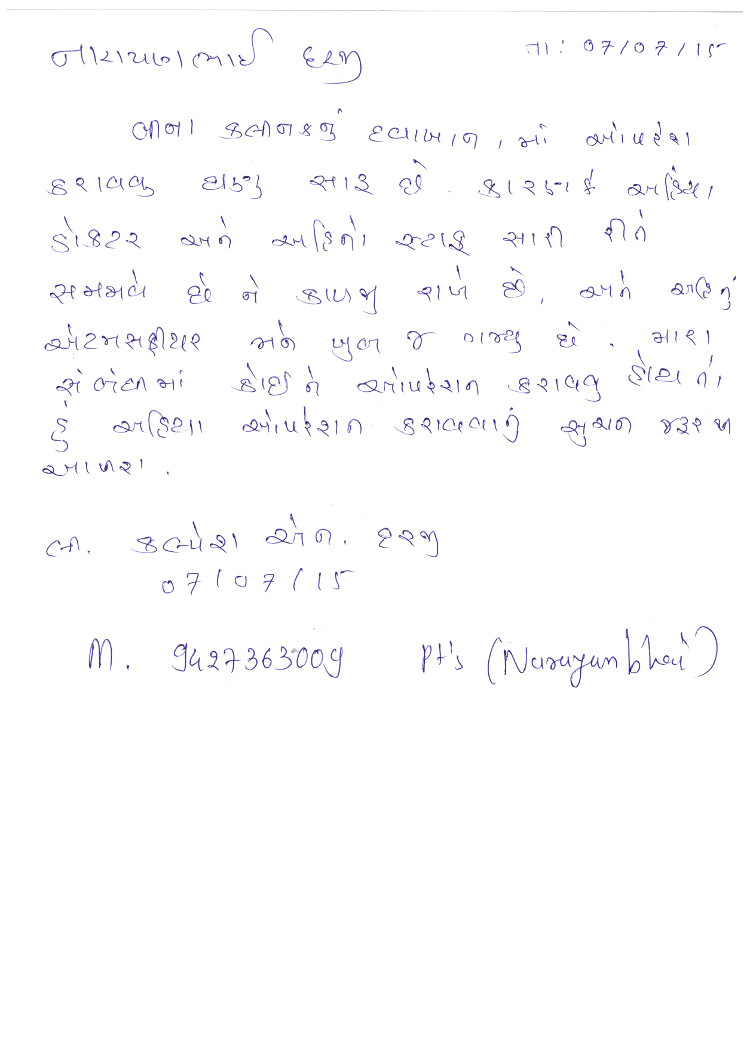 નારાયણભાઈ દરજી તા: ૦7/૦7/15
બાના કલીનકનું દવાખાના માં ઓપરેશ
કરાવવુ ઘણુ સારૂ છે. કારણ કે અહિંયા
ડોકટર અને અહિનો સ્ટાફ સારી રીતે
સમજાવે છે ને કાળજી રાખે છે, અને અહિનું
એટમસફીયર મને ખુબ જ ગમ્યુ છે. મારા
સંબંધમાં કોઈને ઓપરેશન કરાવવુ હોય તો
હું અહિયા ઓપરેશન કરાવવાનું સુચન જરૂર થી
આપશ.
લી. કલ્પેશ એન. દરજી
07/07/15
M. 9427363009 Pt's (Narayanbhai)